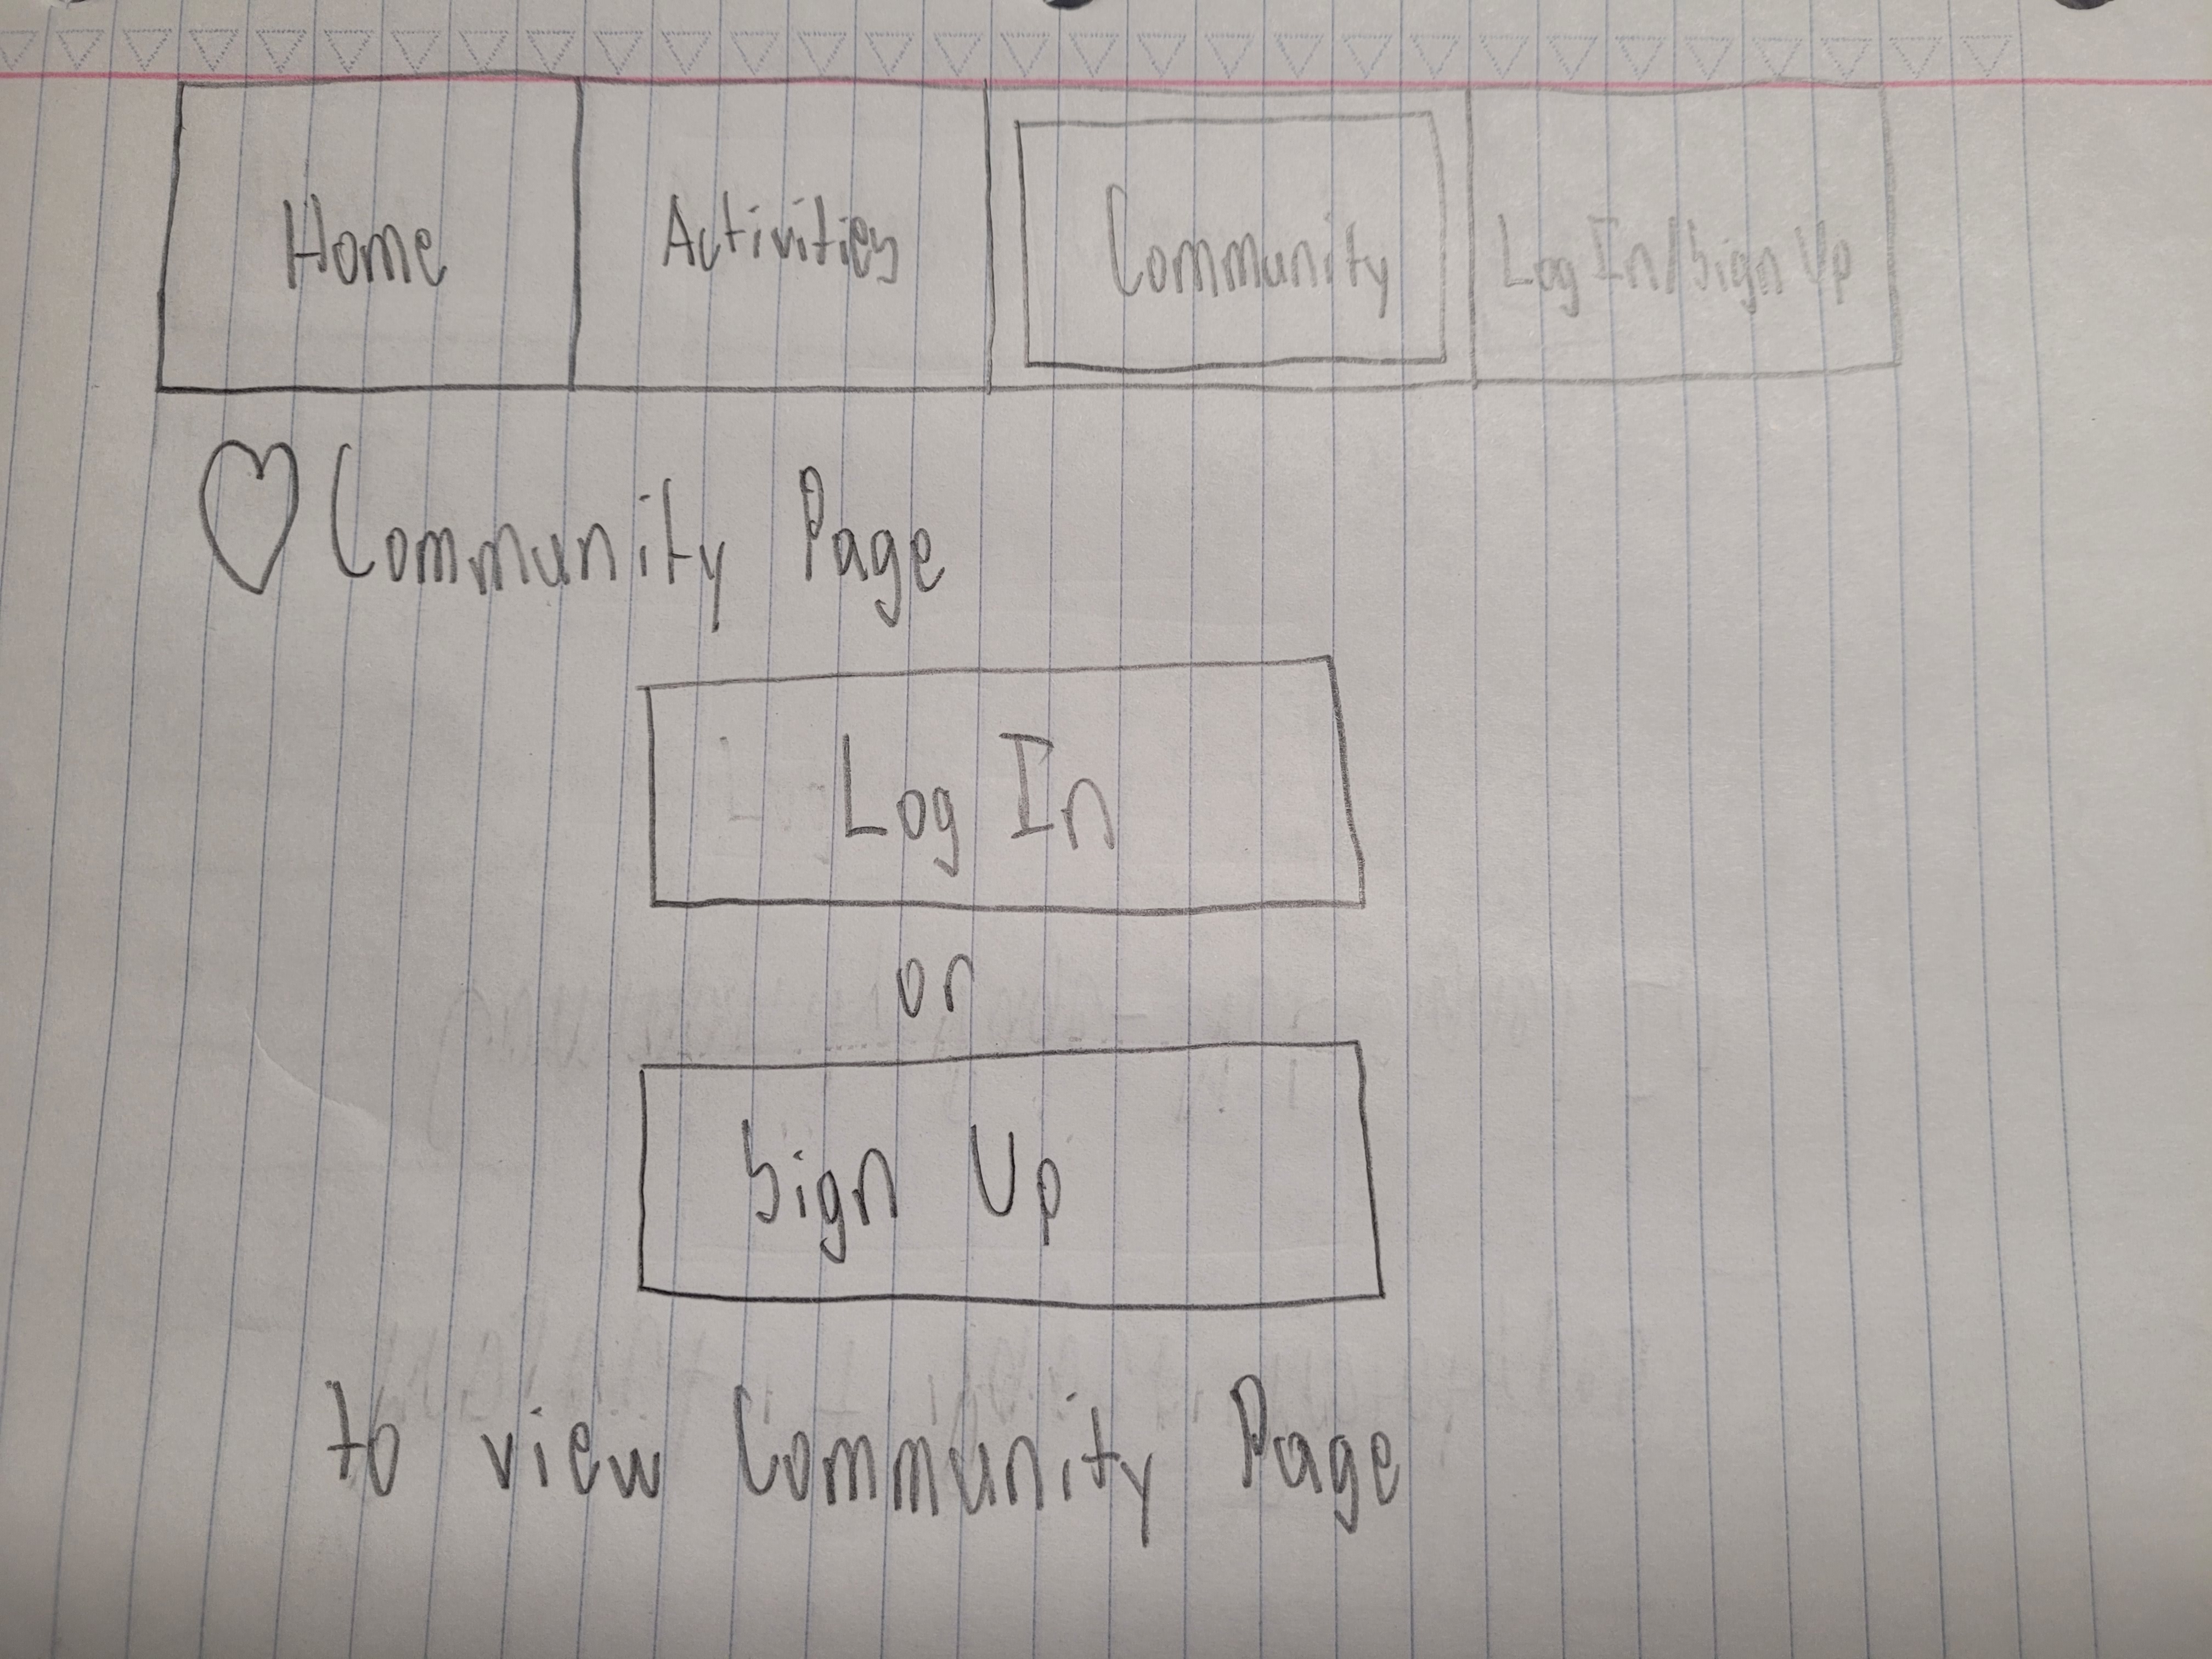 Home Activities Community Log In/Sign Up
♡ Community Page
Log In
or
Sign Up
to view Community Page